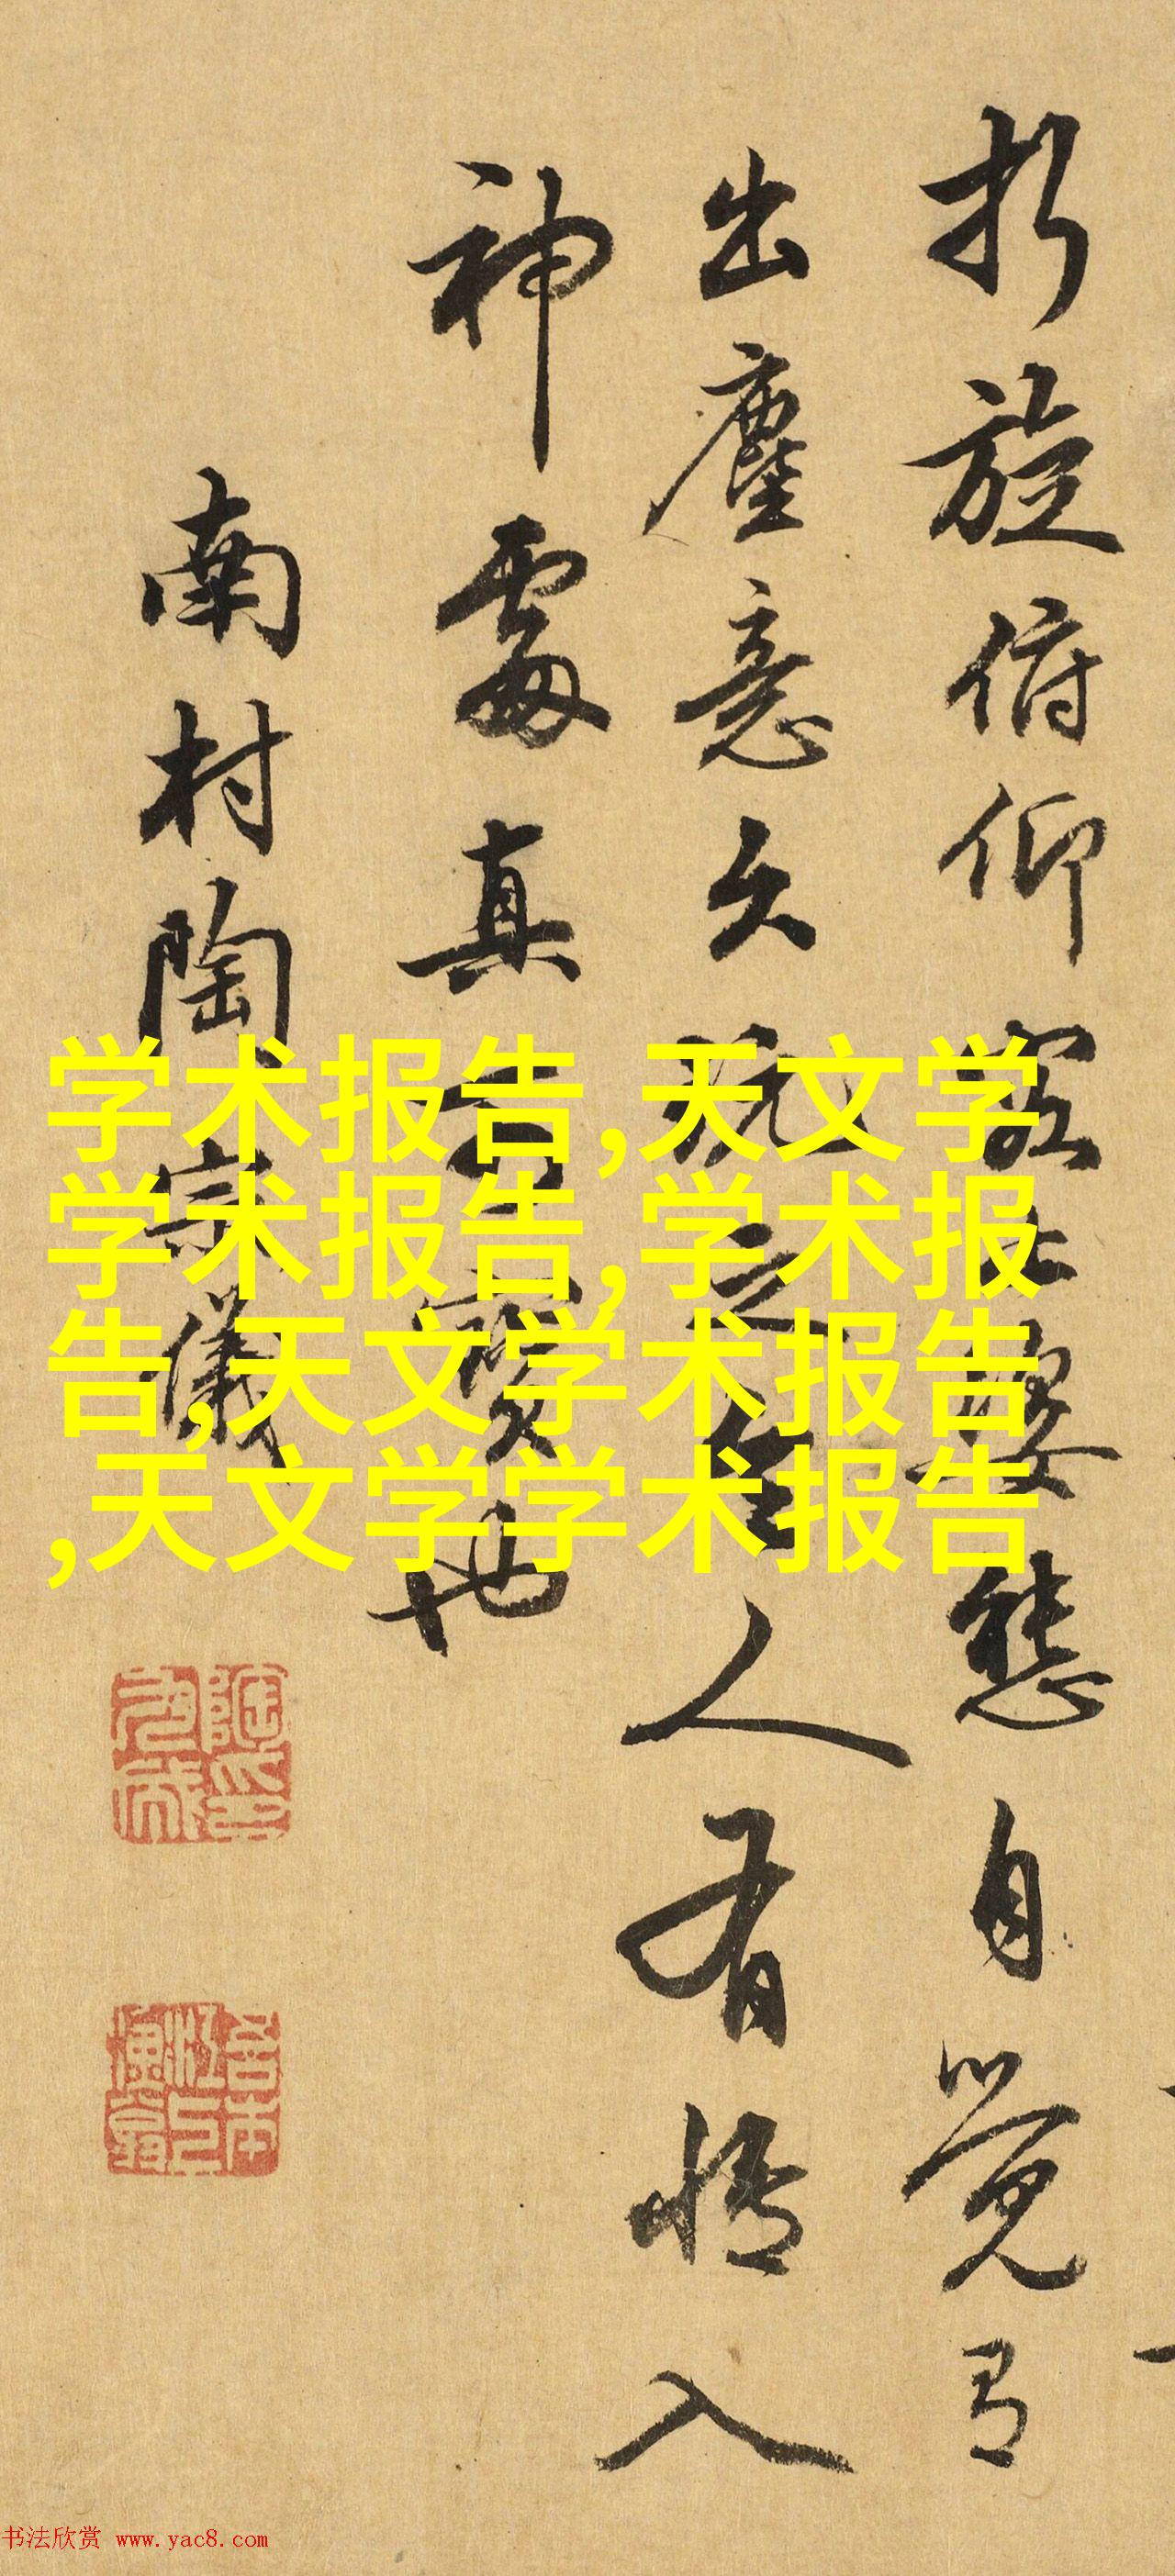 折旋俯仰態自覺有
出塵意久玩之令人有悟入
神處真可寶也
南村陶宗儀
学术报告,天文学
学术报告,学术报
告,天文学术报告
,天文学学术报告
书法欣赏 www.yac8.com